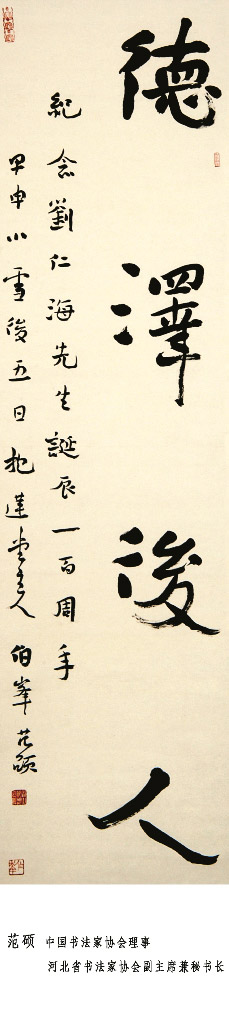 德澤後人
紀念劉仁海先生誕辰一百周年
甲申小雪後五日抱蓮堂主人伯峯范硕
范硕 中国书法家协会理事
河北省书法家协会副主席兼秘书长